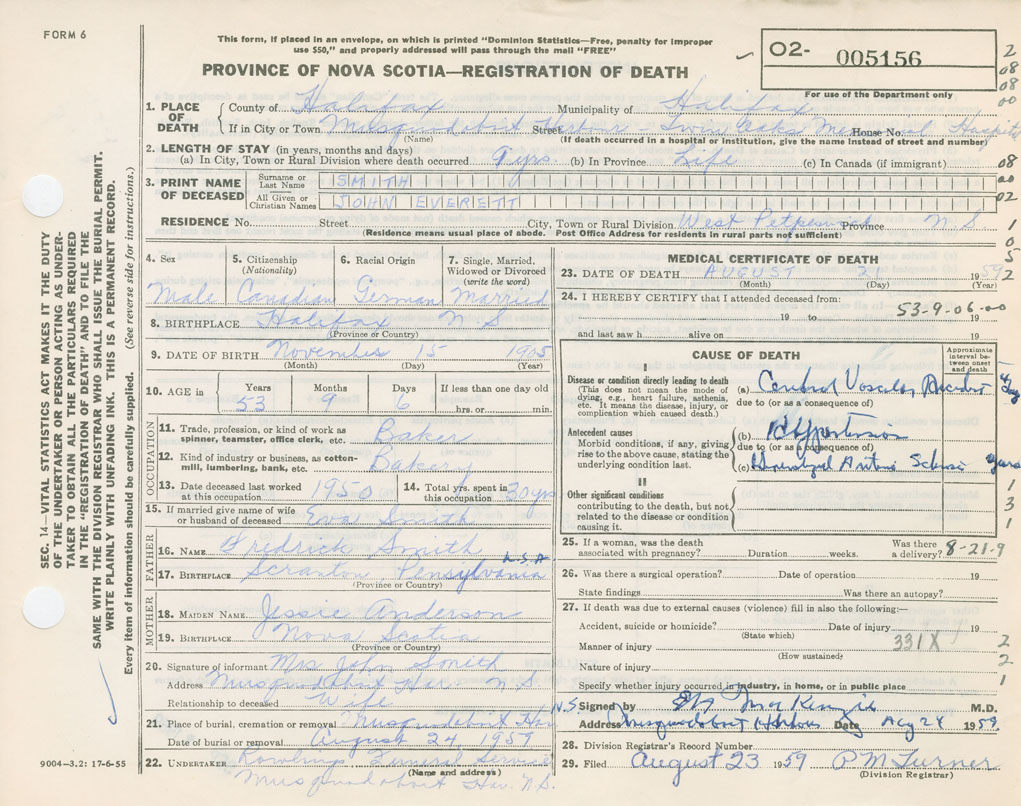 FORM 6
This form, if placed in an envelope, on which is printed "Dominion Statistics—Free, penalty for improper
use $50," and properly addressed will pass through the mail "FREE"
PROVINCE OF NOVA SCOTIA—REGISTRATION OF DEATH
O2- 005156
For use of the Department only
2
08
08
00
1. PLACE OF DEATH
County of Halifax Municipality of Halifax
If in City or Town Musquodoboit Harbour - Twin Oaks Memorial Hospital Street House No.
(Name) (If death occurred in a hospital or institution, give the name instead of street and number)
2. LENGTH OF STAY (in years, months and days)
(a) In City, Town or Rural Division where death occurred 9 yrs. (b) In Province Life (c) In Canada (if immigrant) 08
3. PRINT NAME OF DECEASED
Surname or Last Name SMITH 00
All Given or Christian Names JOHN EVERETT 02
RESIDENCE No. Street City, Town or Rural Division West Petpeswick Province N S
(Residence means usual place of abode. Post Office Address for residents in rural parts not sufficient)
1
0
5
2
4. Sex Male
5. Citizenship (Nationality) Canadian
6. Racial Origin German
7. Single, Married, Widowed or Divorced (write the word) Married
8. BIRTHPLACE Halifax N S
(Province or Country)
9. DATE OF BIRTH November 15 1905
(Month) (Day) (Year)
10. AGE in Years 53 Months 9 Days 6 If less than one day old hrs. or min.
OCCUPATION
11. Trade, profession, or kind of work as spinner, teamster, office clerk, etc. Baker
12. Kind of industry or business, as cotton-mill, lumbering, bank, etc. Bakery
13. Date deceased last worked at this occupation 1950
14. Total yrs. spent in this occupation 30 yrs
15. If married give name of wife or husband of deceased Eva Smith
FATHER
16. NAME Fredrick Smith
17. BIRTHPLACE Scranton Pensylvania U.S.A
(Province or Country)
MOTHER
18. MAIDEN NAME Jessie Anderson
19. BIRTHPLACE Nova Scotia
(Province or Country)
20. Signature of informant Mrs John Smith
Address Musquodoboit Har N S
Relationship to deceased Wife
21. Place of burial, cremation or removal Musquodoboit Har N.S.
Date of burial or removal August 24, 1959
22. UNDERTAKER Rowlings Funeral Service
(Name and address)
Musquodoboit Har. N.S.
MEDICAL CERTIFICATE OF DEATH
23. DATE OF DEATH AUGUST 21 1959
(Month) (Day) (Year)
24. I HEREBY CERTIFY that I attended deceased from: 53-9-06-00
19 to 19
and last saw h alive on 19
CAUSE OF DEATH
Approximate interval between onset and death
I
Disease or condition directly leading to death
(This does not mean the mode of dying, e.g., heart failure, asthenia, etc. It means the disease, injury, or complication which caused death.)
(a) Cerebral Vascular Accident
due to (or as a consequence of)
Antecedent causes
Morbid conditions, if any, giving rise to the above cause, stating the underlying condition last.
(b) Hypertension
due to (or as a consequence of)
(c) Generalized Arterio Sclerosis years
II
Other significant conditions
contributing to the death, but not related to the disease or condition causing it.
1
3
1
25. If a woman, was the death associated with pregnancy? Duration weeks. Was there a delivery? 8-21-9
26. Was there a surgical operation? Date of operation 19
State findings Was there an autopsy?
27. If death was due to external causes (violence) fill in also the following:—
Accident, suicide or homicide? Date of injury 19
(State which)
Manner of injury 331X
(How sustained)
Nature of injury
2
2
1
Specify whether injury occurred in industry, in home, or in public place
Signed by MacKenzie M.D.
Address Musquodoboit Harbour Date Aug 24 1959
28. Division Registrar's Record Number
29. Filed August 23 1959 P M Turner
(Division Registrar)
9004-3.2: 17-6-55
SEC. 14—VITAL STATISTICS ACT MAKES IT THE DUTY
OF THE UNDERTAKER OR PERSON ACTING AS UNDER-
TAKER TO OBTAIN ALL THE PARTICULARS REQUIRED
IN THE "REGISTRATION OF DEATH" AND TO FILE THE
SAME WITH THE DIVISION REGISTRAR WHO SHALL ISSUE THE BURIAL PERMIT.
WRITE PLAINLY WITH UNFADING INK. THIS IS A PERMANENT RECORD.
Every item of information should be carefully supplied. (See reverse side for instructions.)